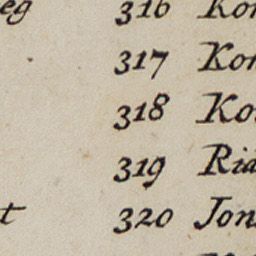 eg 316 Kon
317 Kon
318 Ko
319 Rid
t 320 Jon